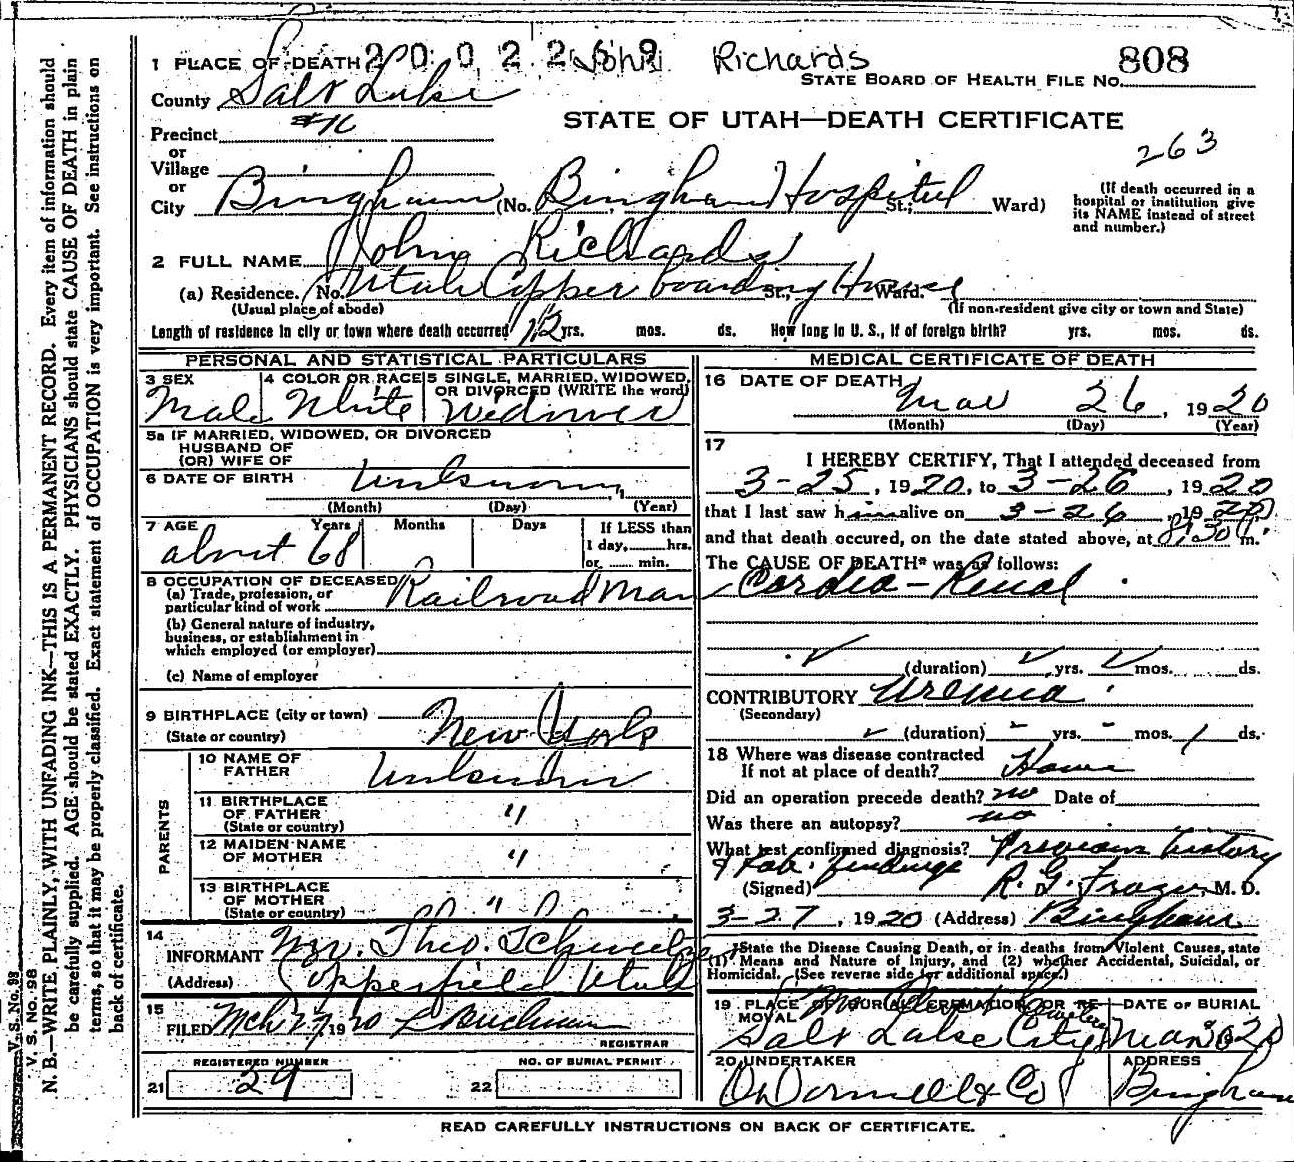 2002259 John Richards
808
1 PLACE OF DEATH
STATE BOARD OF HEALTH FILE No.
County Salt Lake
STATE OF UTAH—DEATH CERTIFICATE
Precinct #16
263
or
Village
or
City Bingham (No. Bingham Hospital St.; Ward)
(If death occurred in a hospital or institution give its NAME instead of street and number.)
2 FULL NAME John Richards
(a) Residence. No. Utah Copper boarding House St., Ward.
(Usual place of abode) (If non-resident give city or town and State)
Length of residence in city or town where death occurred 12 yrs. mos. ds. How long in U. S., if of foreign birth? yrs. mos. ds.
PERSONAL AND STATISTICAL PARTICULARS
3 SEX Male
4 COLOR OR RACE White
5 SINGLE, MARRIED, WIDOWED, OR DIVORCED (WRITE the word) Widower
5a IF MARRIED, WIDOWED, OR DIVORCED
HUSBAND OF
(OR) WIFE OF
6 DATE OF BIRTH Unknown
(Month) (Day) (Year)
7 AGE Years Months Days If LESS than
about 68 1 day, hrs.
or min.
8 OCCUPATION OF DECEASED
(a) Trade, profession, or
particular kind of work Railroad Man
(b) General nature of industry,
business, or establishment in
which employed (or employer)
(c) Name of employer
9 BIRTHPLACE (city or town)
(State or country) New York
PARENTS
10 NAME OF FATHER Unknown
11 BIRTHPLACE OF FATHER (State or country) "
12 MAIDEN NAME OF MOTHER "
13 BIRTHPLACE OF MOTHER (State or country) "
14
INFORMANT Theo.
(Address) Copperfield Utah
15
FILED Mch 27 1920 L Buchman
REGISTRAR
REGISTERED NUMBER
21 29
NO. OF BURIAL PERMIT
22
MEDICAL CERTIFICATE OF DEATH
16 DATE OF DEATH
Mar 26, 1920
(Month) (Day) (Year)
17
I HEREBY CERTIFY, That I attended deceased from
3-25, 1920, to 3-26, 1920
that I last saw him alive on 3-26, 1920
and that death occured, on the date stated above, at 8:30 m.
The CAUSE OF DEATH* was as follows:
Cardio-Renal
(duration) yrs. mos. ds.
CONTRIBUTORY Uremia
(Secondary)
(duration) - yrs. - mos. 1 ds.
18 Where was disease contracted
If not at place of death? Home
Did an operation precede death? no Date of
Was there an autopsy? no
What test confirmed diagnosis? Previous history
& Lab. findings
(Signed) R. G. Frazier M. D.
3-27, 1920 (Address) Bingham
*State the Disease Causing Death, or in deaths from Violent Causes, state
(1) Means and Nature of Injury, and (2) whether Accidental, Suicidal, or
Homicidal. (See reverse side for additional space.)
19 PLACE OF BURIAL CREMATION OR REMOVAL
Mt Olivet Cemetery
Salt Lake City
DATE OF BURIAL
Mar 30 20
20 UNDERTAKER
O'Donnell & Co
ADDRESS
Bingham
READ CAREFULLY INSTRUCTIONS ON BACK OF CERTIFICATE.
V. S. No. 98
V. S. No. 98
N. B.—WRITE PLAINLY, WITH UNFADING INK—THIS IS A PERMANENT RECORD. Every item of information should
be carefully supplied. AGE should be stated EXACTLY. PHYSICIANS should state CAUSE OF DEATH in plain
terms, so that it may be properly classified. Exact statement of OCCUPATION is very important. See instructions on
back of certificate.